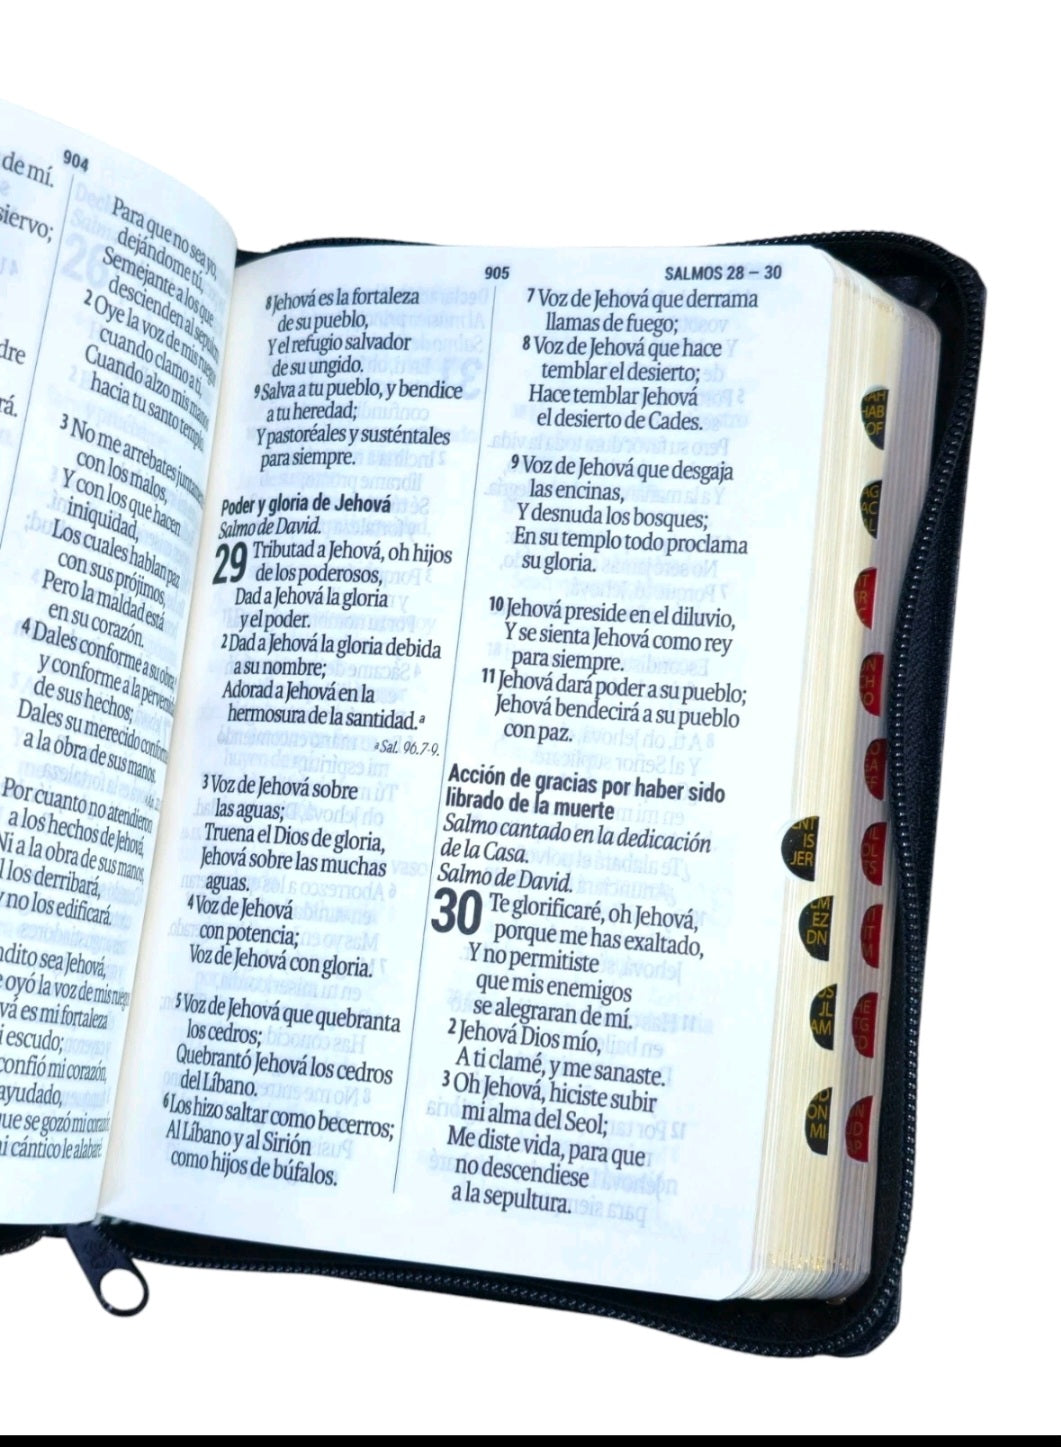 904
de mí.
siervo;
dre
rá.
Para que no sea yo,
dejándome tú,
Semejante a los que
descienden al sepulcro
2 Oye la voz de mis ruegos
cuando clamo a ti,
Cuando alzo mis manos
hacia tu santo templo.
3 No me arrebates juntamente
con los malos,
Y con los que hacen
iniquidad,
Los cuales hablan paz
con sus prójimos,
Pero la maldad está
en su corazón.
4 Dales conforme a su obra,
y conforme a la perversidad
de sus hechos;
Dales su merecido conforme
a la obra de sus manos.
Por cuanto no atendieron
a los hechos de Jehová,
Ni a la obra de sus manos,
l los derribará,
y no los edificará.
ndito sea Jehová,
e oyó la voz de mis ruegos
vá es mi fortaleza
i escudo;
confió mi corazón,
ayudado,
ue se gozó mi corazón
i cántico le alabaré.
905
SALMOS 28 – 30
8 Jehová es la fortaleza
de su pueblo,
Y el refugio salvador
de su ungido.
9 Salva a tu pueblo, y bendice
a tu heredad;
Y pastoréales y susténtales
para siempre.
Poder y gloria de Jehová
Salmo de David.
29 Tributad a Jehová, oh hijos
de los poderosos,
Dad a Jehová la gloria
y el poder.
2 Dad a Jehová la gloria debida
a su nombre;
Adorad a Jehová en la
hermosura de la santidad.a
a Sal. 96.7-9.
3 Voz de Jehová sobre
las aguas;
Truena el Dios de gloria,
Jehová sobre las muchas
aguas.
4 Voz de Jehová
con potencia;
Voz de Jehová con gloria.
5 Voz de Jehová que quebranta
los cedros;
Quebrantó Jehová los cedros
del Líbano.
6 Los hizo saltar como becerros;
Al Líbano y al Sirión
como hijos de búfalos.
7 Voz de Jehová que derrama
llamas de fuego;
8 Voz de Jehová que hace
temblar el desierto;
Hace temblar Jehová
el desierto de Cades.
9 Voz de Jehová que desgaja
las encinas,
Y desnuda los bosques;
En su templo todo proclama
su gloria.
10 Jehová preside en el diluvio,
Y se sienta Jehová como rey
para siempre.
11 Jehová dará poder a su pueblo;
Jehová bendecirá a su pueblo
con paz.
Acción de gracias por haber sido
librado de la muerte
Salmo cantado en la dedicación
de la Casa.
Salmo de David.
30 Te glorificaré, oh Jehová,
porque me has exaltado,
Y no permitiste
que mis enemigos
se alegraran de mí.
2 Jehová Dios mío,
A ti clamé, y me sanaste.
3 Oh Jehová, hiciste subir
mi alma del Seol;
Me diste vida, para que
no descendiese
a la sepultura.
HAB
IS
JER
EZ
DN
JL
AM
MI